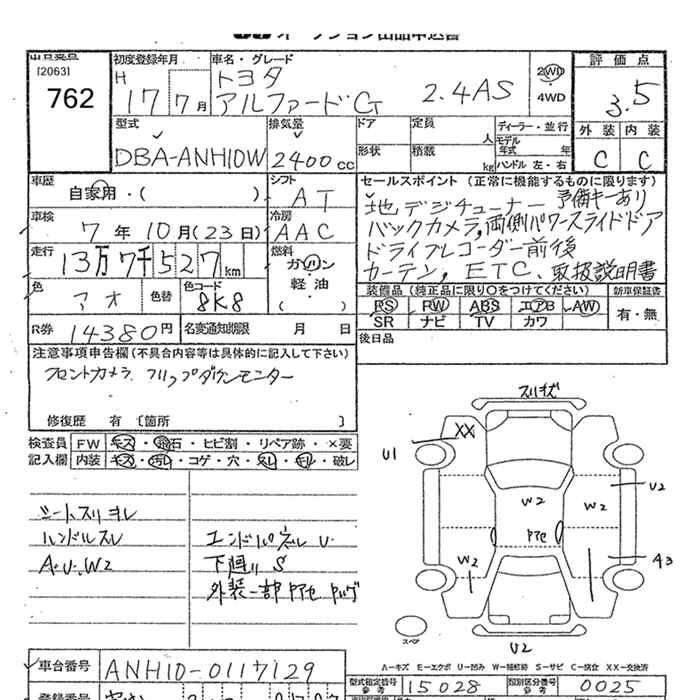 オークション出品申込書
出品受番
[2063]
762
初度登録年月
H
17 7 月
車名・グレード
トヨタ
アルファードG 2.4AS
2WD
4WD
評価点
3.5
外装 内装
C C
型式
DBA-ANH10W
排気量
2400 cc
ドア 定員 人
形状 積載 kg
ディーラー・並行
モデル年式 年
ハンドル 左・右
車歴
自家用・( )
シフト
AT
車検
7 年 10 月 (23 日)
冷房
AAC
走行
13万7千527 km
燃料
ガソリン
軽油
( )
色
アオ
色替
色コード
8K8
R券
14380円
名変通知期限 月 日
セールスポイント (正常に機能するものに限ります)
地デジチューナー 予備キーあり
バックカメラ,両側パワースライドドア
ドライブレコーダー前後
カーテン, ETC、取扱説明書
装備品 (純正品に限り○をつけてください)
新車保証書
PS PW ABS エアB AW
SR ナビ TV カワ
有・無
後日品
注意事項申告欄 (不具合内容等は具体的に記入して下さい)
フロントカメラ フリップダウンモニター
修復歴 有 [箇所 ]
検査員
記入欄
FW キズ・飛石・ヒビ割・リペア跡・×要
内装 キズ・汚レ・コゲ・穴・スレ・破レ
シートスリ ヨレ
ハンドルスレ
A・U・W2
エンドパネル U
下廻り S
外装一部
スリキズ
XX
U1
W2
W2
U2
W2
A3
スペア
U2
A-キズ E-エクボ U-凹み W-補修跡 S-サビ C-腐食 XX-交換済
車台番号
ANH10-0117129
型式指定番号
参考
15028
類別区分番号
参考
0025
登録番号